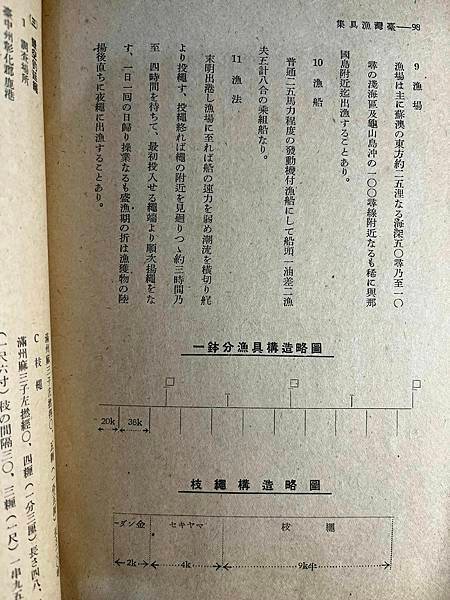 臺灣漁具集——98
9 漁場
漁場は主に蘇澳の東方約二五浬なる海深五〇尋乃至一〇
尋の淺海區及龜山島沖の一〇〇尋線附近なるも稀に與那
國島附近迄出漁することあり。
10 漁船
普通二五馬力程度の發動機付漁船にして船頭一油差二漁
夫五計八合の乘組船なり。
11 漁法
未明出港し漁場に至れば船の速力を弱め潮流を橫切り舵
より投繩す、投繩終れば繩の附近を見廻りつゝ約三時間乃
至 四時間を待ちて、最初投入せる繩端より順次揚繩をな
す、一日一回の日歸り操業なるも盛漁期の折は漁獲物の陸
揚後直ちに夜繩に出漁することあり。
一鉢分漁具構造略圖
20k 38k
枝繩構造略圖
ーダン金 セキヤマ 枝繩
2k 4k 9k半
1 調査場所
臺中州彰化郡鹿港
C 枝繩
滿州麻三子左撚經〇、四糎（一分三厘）長さ四八、
（一尺六寸）枝の間隔三〇、三糎（一尺）一串九五